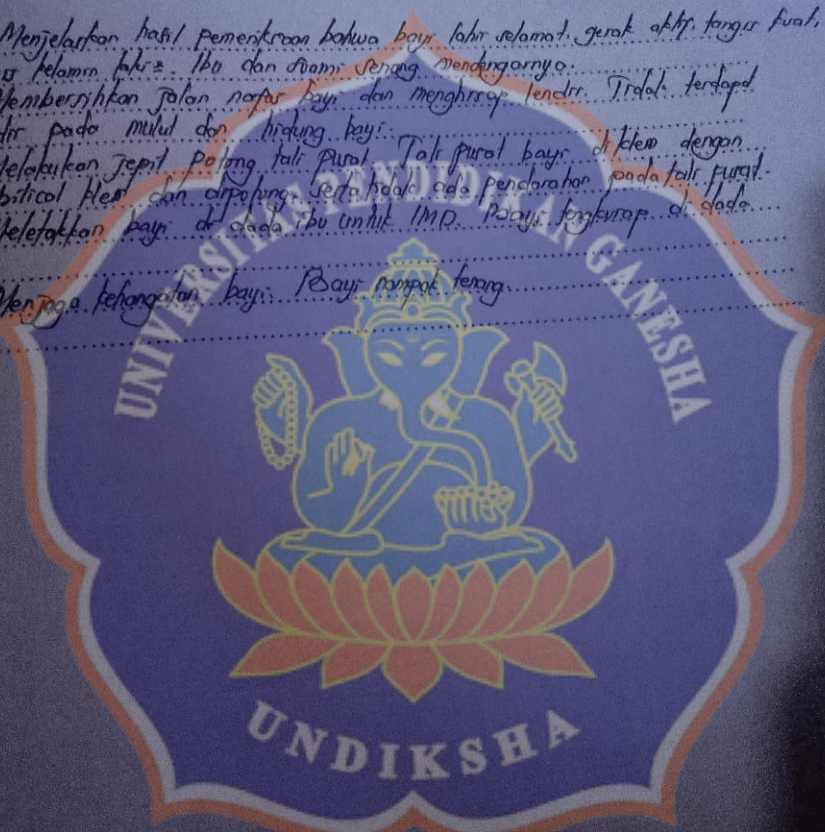 Menjelaskan hasil pemeriksaan bahwa bayi lahir selamat, gerak aktif, tangis kuat,
kelamin laki2. Ibu dan suami senang mendengarnya.
Membersihkan jalan nafas bayi dan menghisap lendir. Tidak terdapat
dir pada mulut dan hidung bayi.
Melakukan jepit potong tali pusat. Tali pusat bayi di klem dengan
bilical klem dan dipotong. Serta tidak ada pendarahan pada tali pusat.
Meletakkan bayi di dada ibu untuk IMD. Bayi tengkurap di dada
Menjaga kehangatan bayi. Bayi nampak tenang.
UNIVERSITAS PENDIDIKAN GANESHA
UNDIKSHA